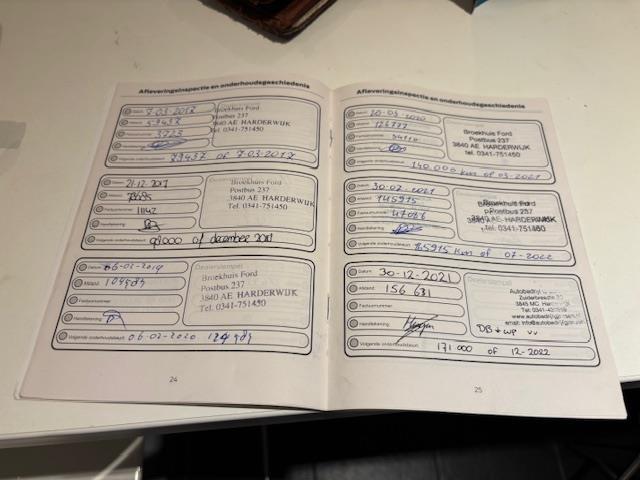 Afleveringsinspectie en onderhoudsgeschiedenis
Datum: 7-03-2017
59437
3723
Broekhuis Ford
Postbus 237
3840 AE HARDERWIJK
Tel. 0341-751450
Volgende onderhoudsbeurt: 79437 of 7-03-2017
Datum: 21-12-2017
11142
Broekhuis Ford
Postbus 237
3840 AE HARDERWIJK
Tel. 0341-751450
Handtekening:
Volgende onderhoudsbeurt: of december
Datum: 06-02-2019
Afstand: 104989
Factuurnummer:
Handtekening:
Dealerstempel
Broekhuis Ford
Postbus 237
3840 AE HARDERWIJK
Tel. 0341-751450
Volgende onderhoudsbeurt: 06-02-2020 124989
24
Afleveringsinspectie en onderhoudsgeschiedenis
20-03-2020
Broekhuis Ford
Postbus 237
3840 AE HARDERWIJK
tel. 0341-751450
Volgende onderhoudsbeurt: 140.000 km of 03-2021
Datum: 30-07-2021
145915
Factuurnummer: 47086
Handtekening:
Broekhuis Ford
Postbus 237
3840 AE HARDERWIJK
tel. 0341-751450
Volgende onderhoudsbeurt: 165915 km of 07-2022
Datum: 30-12-2021
Afstand: 156 631
Factuurnummer:
Handtekening:
Dealerstempel
Zuiderbreedte
3845 MC
DB + WP
Volgende onderhoudsbeurt: 171 000 of 12-2022
25